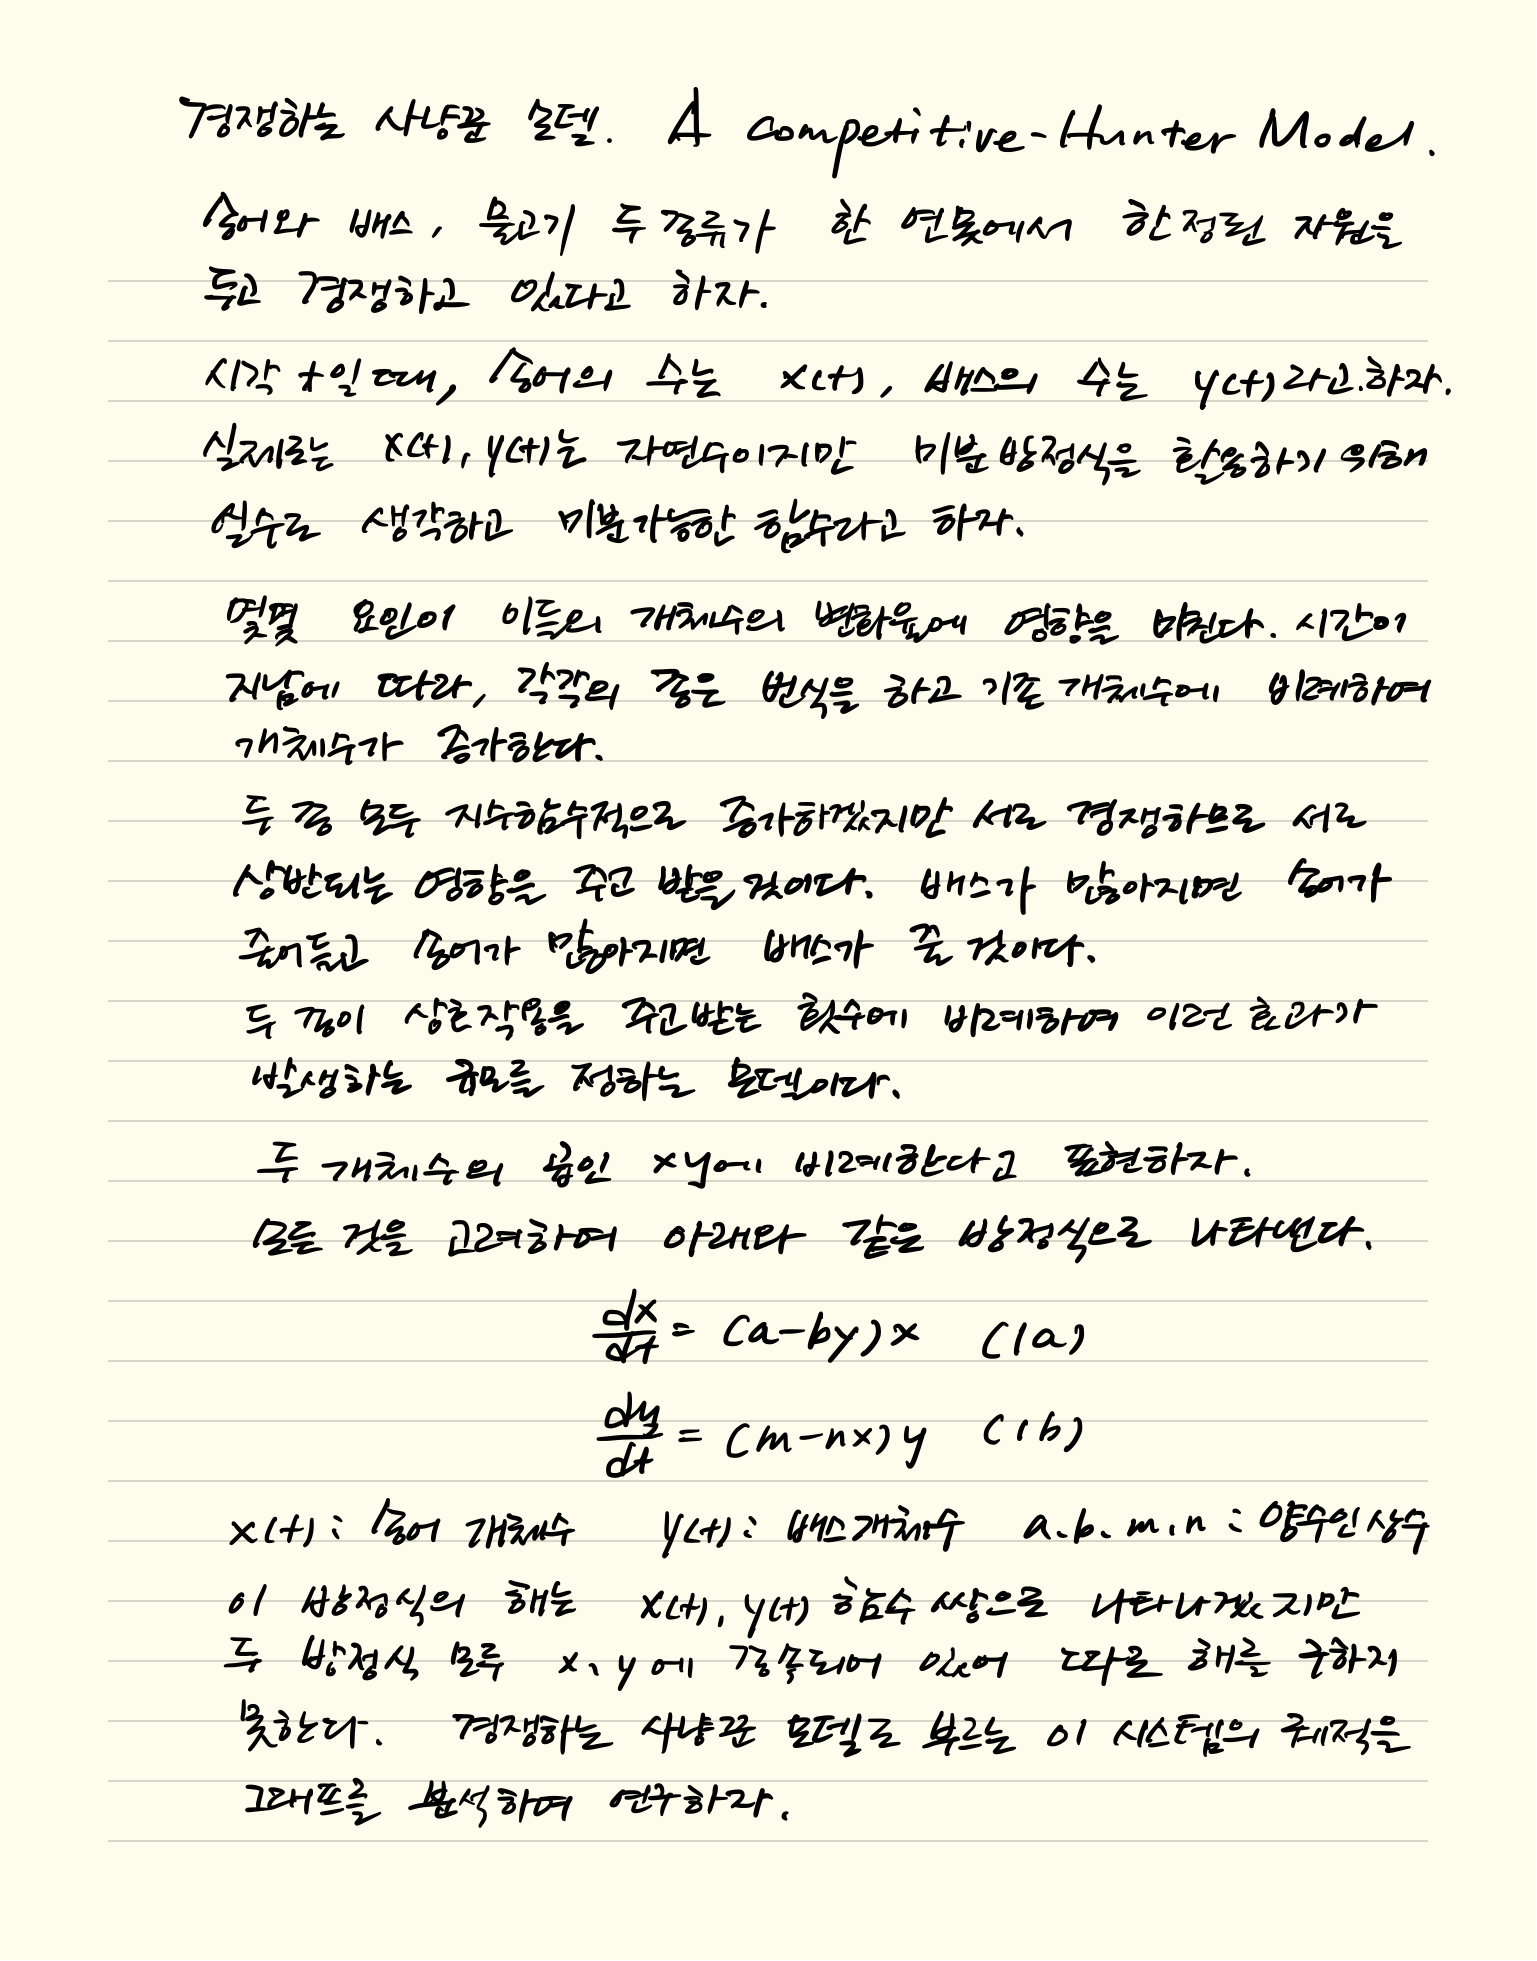 경쟁하는 사냥꾼 모델. A Competitive-Hunter Model.
송어와 배스, 물고기 두 종류가 한 연못에서 한정된 자원을
두고 경쟁하고 있다고 하자.
시각 t일 때, 송어의 수는 x(t), 배스의 수는 y(t)라고.하자.
실제로는 x(t), y(t)는 자연수이지만 미분방정식을 활용하기 위해
실수로 생각하고 미분가능한 함수라고 하자.
몇몇 요인이 이들의 개체수의 변화율에 영향을 미친다. 시간이
지남에 따라, 각각의 종은 번식을 하고 기존 개체수에 비례하여
개체수가 증가한다.
두 종 모두 지수함수적으로 증가하겠지만 서로 경쟁하므로 서로
상반되는 영향을 주고 받을 것이다. 배스가 많아지면 송어가
줄어들고 송어가 많아지면 배스가 줄 것이다.
두 종이 상호작용을 주고받는 횟수에 비례하여 이런 효과가
발생하는 규모를 정하는 모델이다.
두 개체수의 곱인 xy에 비례한다고 표현하자.
모든 것을 고려하여 아래와 같은 방정식으로 나타낸다.
dx/dt = (a-by)x (1a)
dy/dt = (m-nx)y (1b)
x(t): 송어 개체수 y(t): 배스개체수 a.b.m.n: 양수인 상수
이 방정식의 해는 x(t), y(t) 함수 쌍으로 나타나겠지만
두 방정식 모두 x, y에 종속되어 있어 따로 해를 구하지
못한다. 경쟁하는 사냥꾼 모델로 부르는 이 시스템의 궤적을
그래프를 분석하여 연구하자.